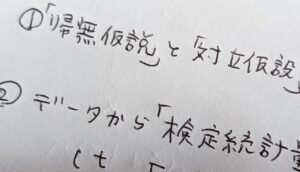 ①「帰無仮説」と「対立仮設」
② データから「検定統計量
(t 「